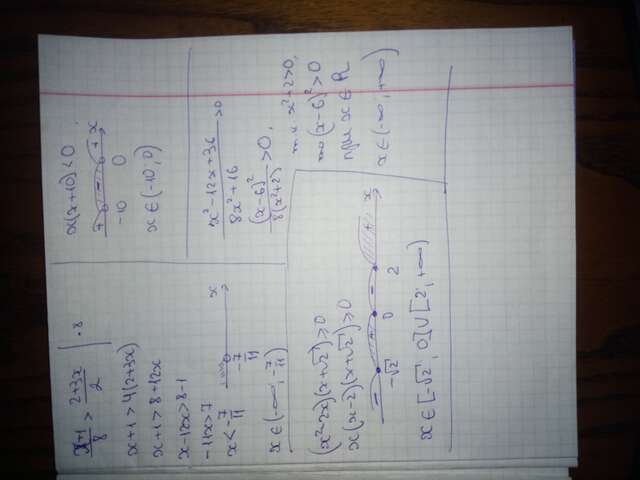 (x+1)/8 > (2+3x)/2 | ·8
x+1>4(2+3x)
x+1>8+12x
x-12x>8-1
-11x>7
x<-7/11
-7/11 x
x∈(-∞; -7/11)
x(x+10)<0,
+ - + x
-10 0
x∈(-10; 0)
(x²-12x+36)/(8x²+16) >0
(x-6)²/(8(x²+2)) >0,
т.к x²+2>0,
то (x-6)²>0
при x∈R
x∈(-∞; +∞)
(x²-2x)(x+√2)≥0
x(x-2)(x+√2)≥0
- + - + x
-√2 0 2
x∈[-√2; 0]∪[2; +∞)